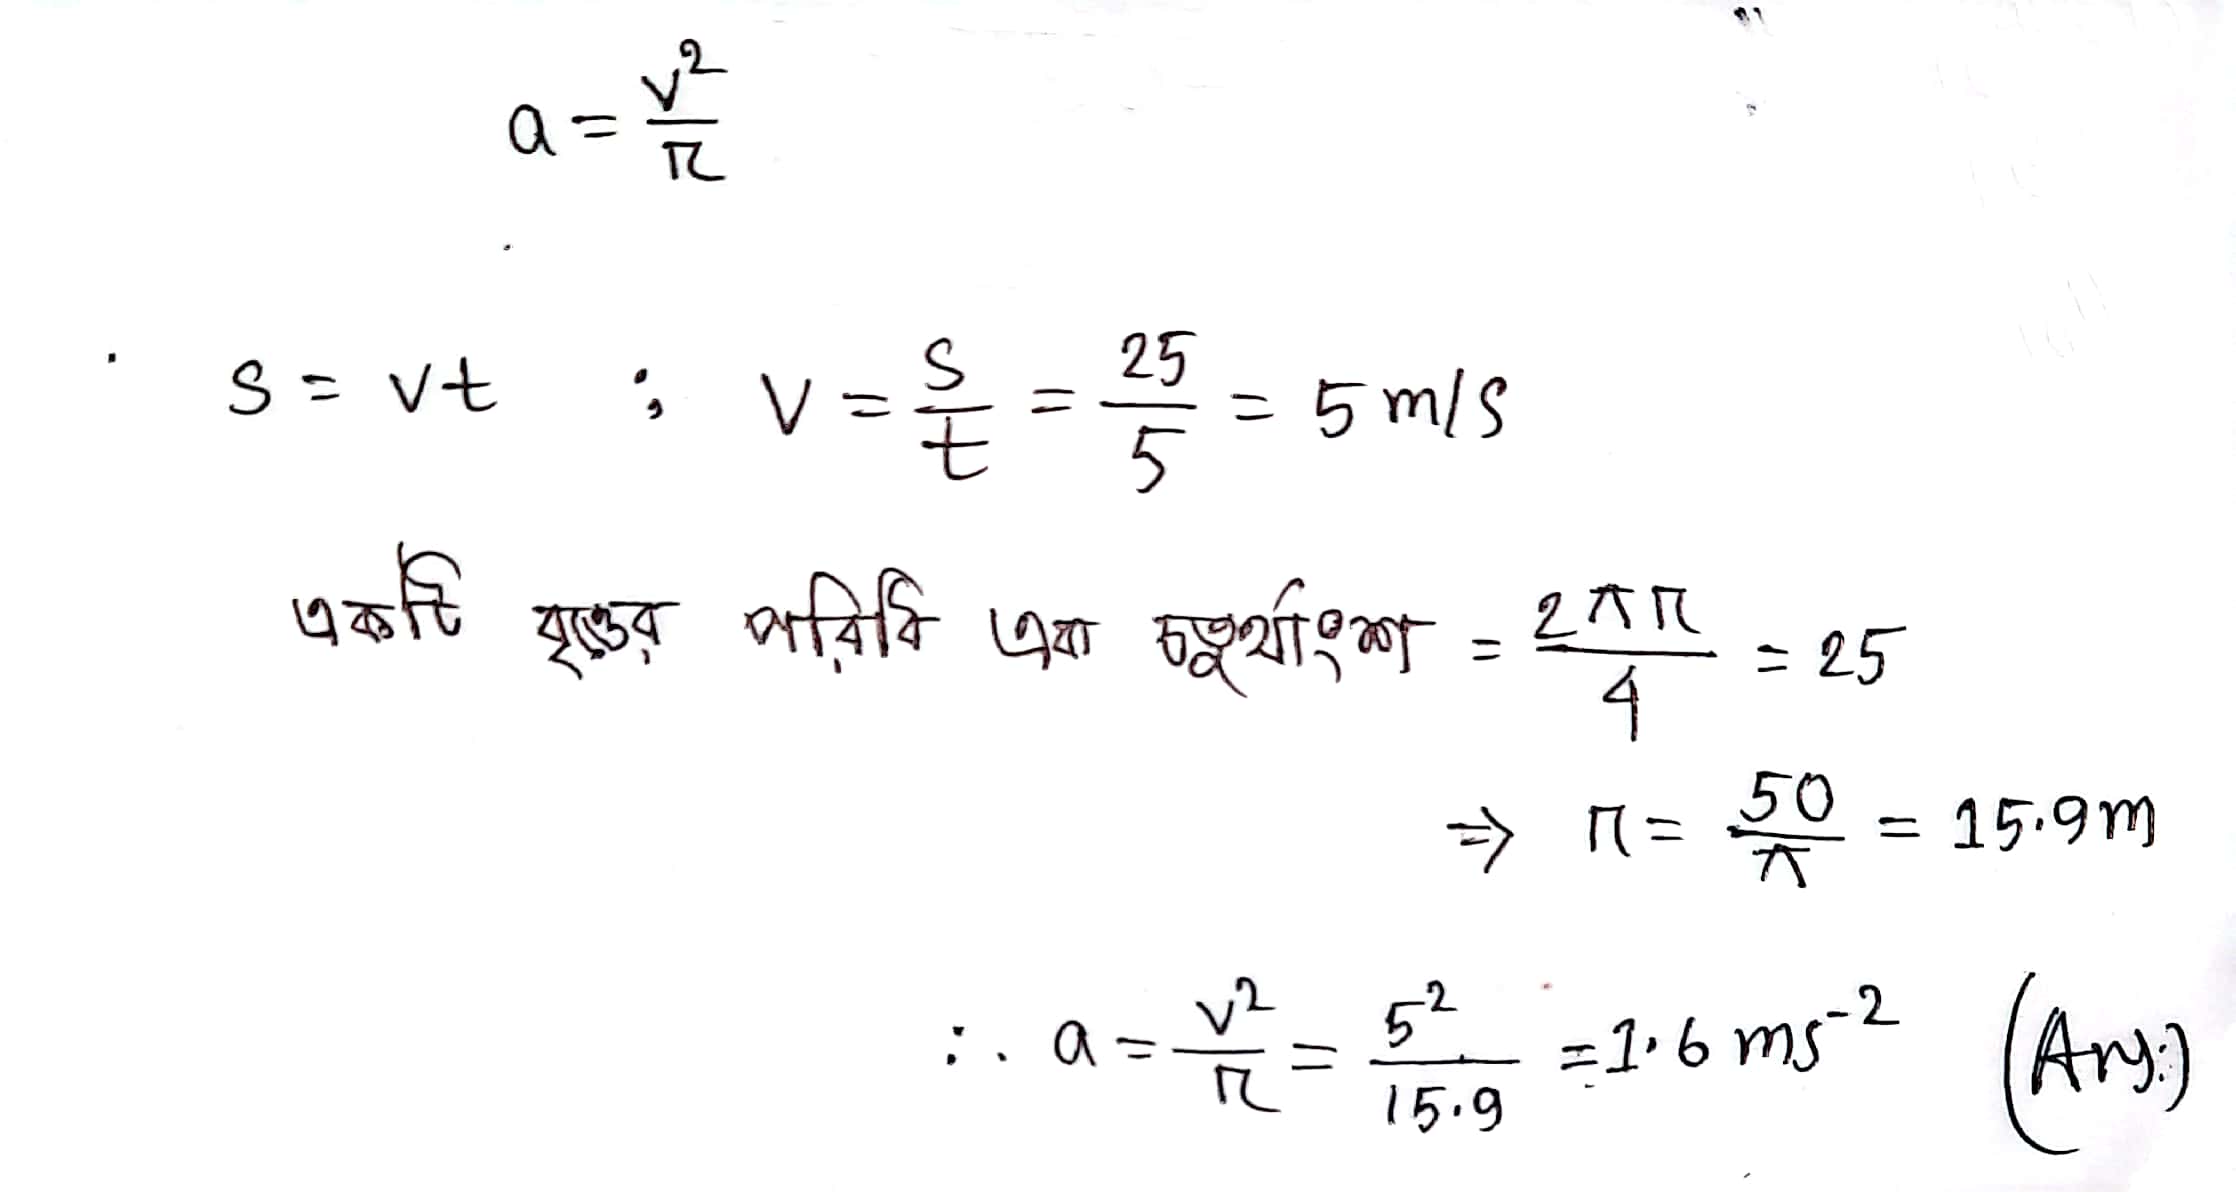 a = v²/r
s = vt ; v = s/t = 25/5 = 5 m/s
একটি বৃত্তের পরিধি এক চতুর্থাংশ = 2πr/4 = 25
⇒ r = 50/π = 15.9m
∴ a = v²/r = 5²/15.9 = 1.6 ms⁻² (Ans:)